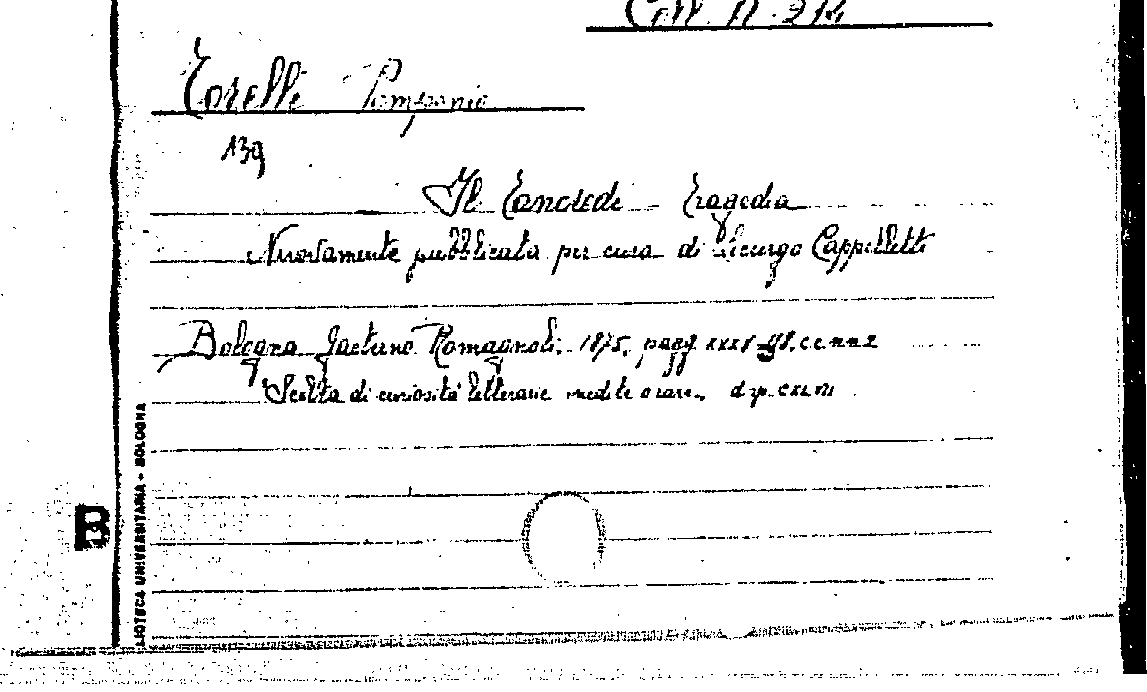 Coll. N. 214
Torelli Pomponio
139
Il Tancredi Tragedia
Nuovamente pubblicata per cura di Licurgo Cappelletti
Bologna Gaetano Romagnoli. 1875. pagg. cc nn 2
Scelta di curiosità letterarie inedite o rare.
B
BLIOTECA UNIVERSITARIA - BOLOGNA